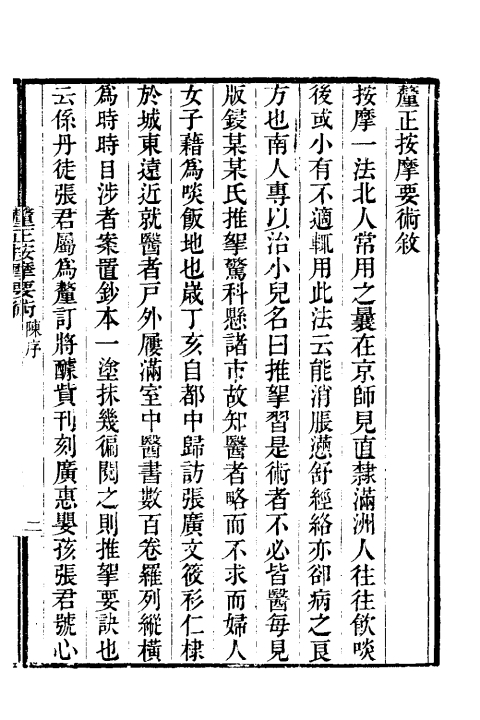 釐正按摩要術敘
按摩一法北人常用之曩在京師見直隸滿洲人往往飲啖
後或小有不適輒用此法云能消脹懣舒經絡亦卻病之良
方也南人專以治小兒名曰推拏習是術者不必皆醫每見
版鋟某某氏推拏驚科懸諸市故知醫者略而不求而婦人
女子藉為啖飯地也歲丁亥自都中歸訪張廣文筱衫仁棣
於城東遠近就醫者戶外屨滿室中醫書數百卷羅列縱橫
為時時目涉者案置鈔本一塗抹幾徧閱之則推拏要訣也
云係丹徒張君屬為釐訂將醵貲刊刻廣惠嬰孩張君號心
釐正按摩要術 陳序 二